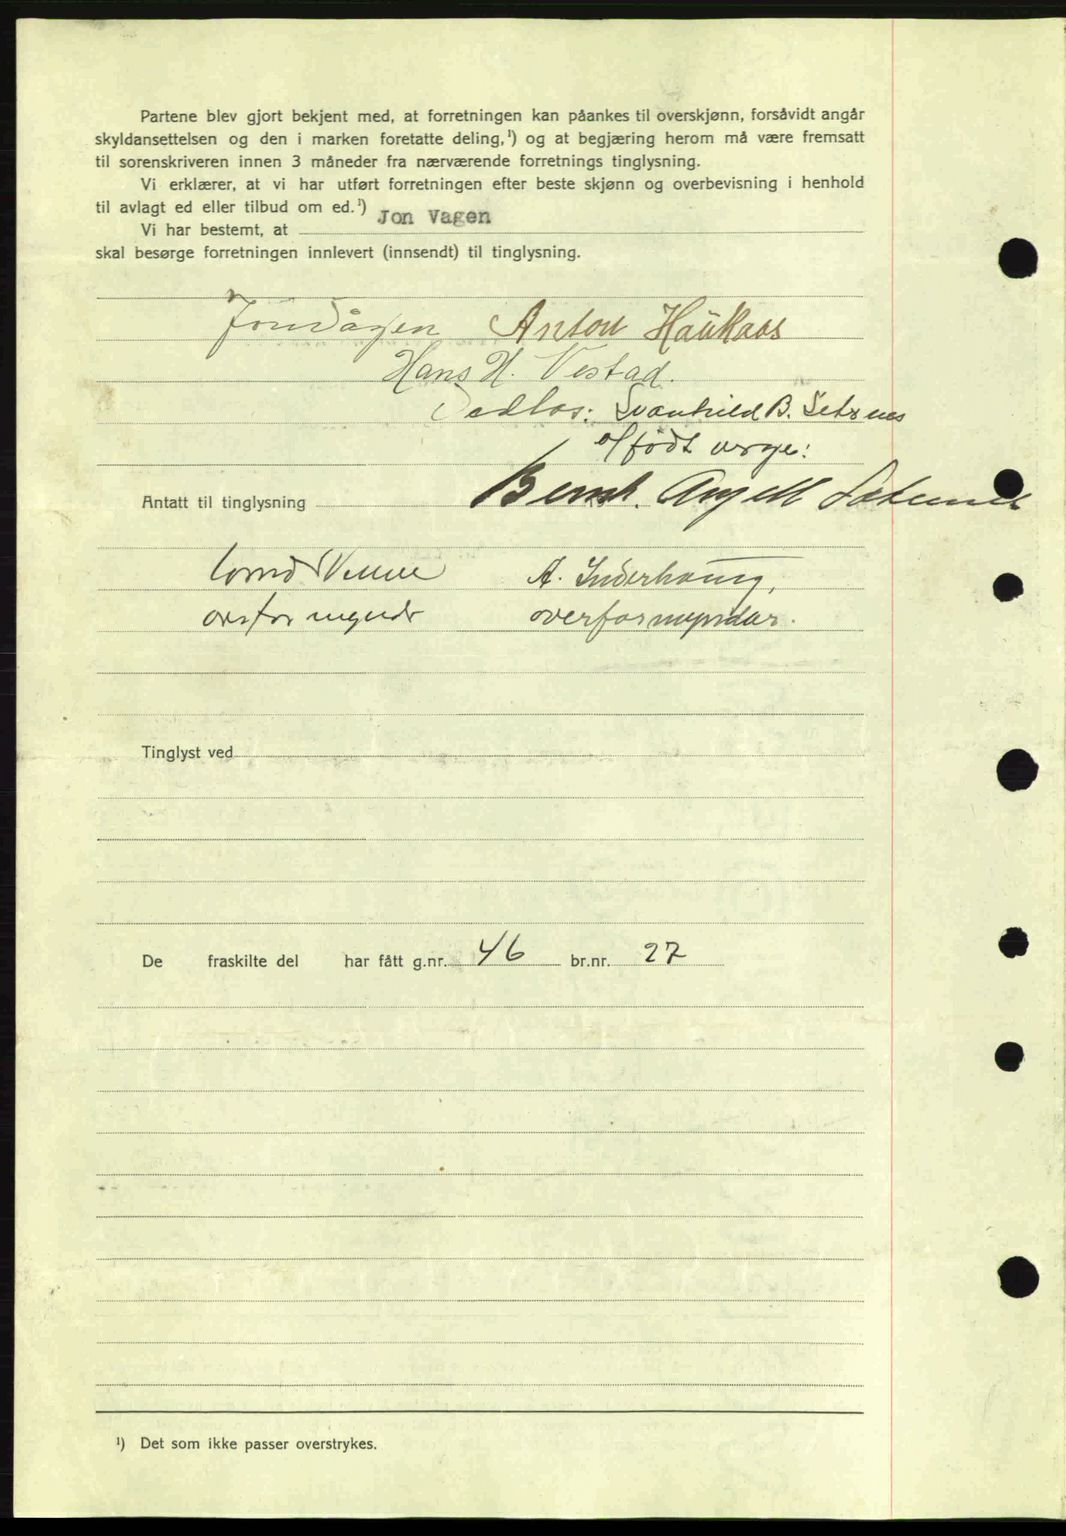 Partene blev gjort bekjent med, at forretningen kan påankes til overskjønn, forsåvidt angår
skyldansettelsen og den i marken foretatte deling,¹) og at begjæring herom må være fremsatt
til sorenskriveren innen 3 måneder fra nærværende forretnings tinglysning.
Vi erklærer, at vi har utført forretningen efter beste skjønn og overbevisning i henhold
til avlagt ed eller tilbud om ed.¹)
Vi har bestemt, at Jon Vagen
skal besørge forretningen innlevert (innsendt) til tinglysning.
Jon Vågen Anton Haukaas
Hans H. Vestad.
Svanhild B. Setsnes
født verge:
Antatt til tinglysning Bernh. Angell
A. Inderhaug,
overformynder overformyndar.
Tinglyst ved
De fraskilte del har fått g.nr. 46 br.nr. 27
¹) Det som ikke passer overstrykes.